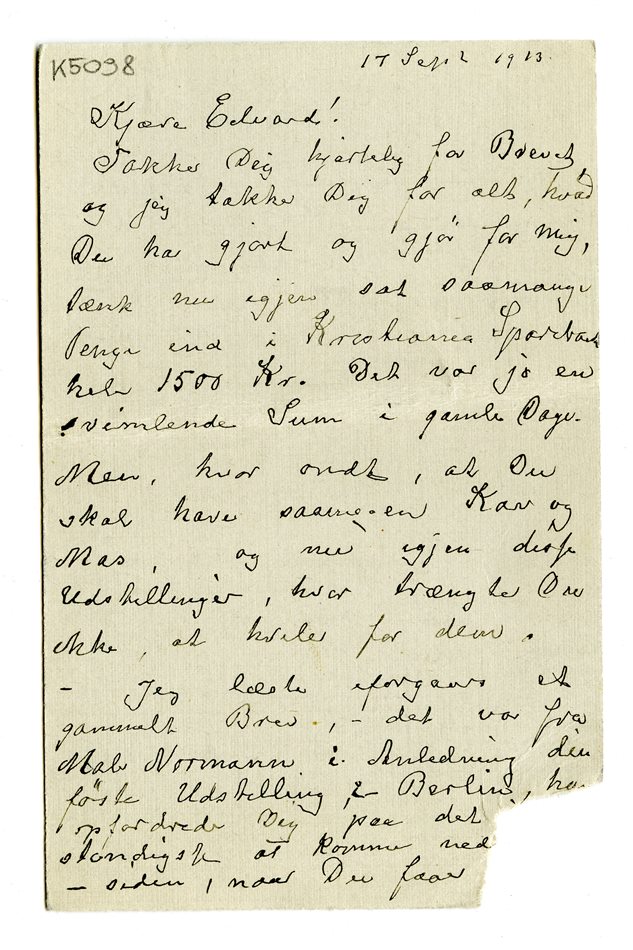 K5098
17 Sept 1913.
Kjære Edvard!
Takker Dig hjertelig for Brevet,
og jeg takke Dig for alt, hvad
Du har gjort og gjör for mig,
tænk nu igjen sat saamange
Penge ind i Kristiania Sparebank
hele 1500 Kr. Det var jo en
svimlende Sum i gamle Dage.
Men, hvor ondt, at Du
skal have saamegen Kav og
Mas, og nu igjen disse
Udstillinger, hvor trængte Du
ikke, at hvile for dem.
- Jeg læste iforgaars et
gammelt Brev, - det var fra
Maler Normann i Anledning din
første Udstilling i Berlin, han
opfordrede Dig paa det
stendigste at komme ned
- siden, naar Du faar